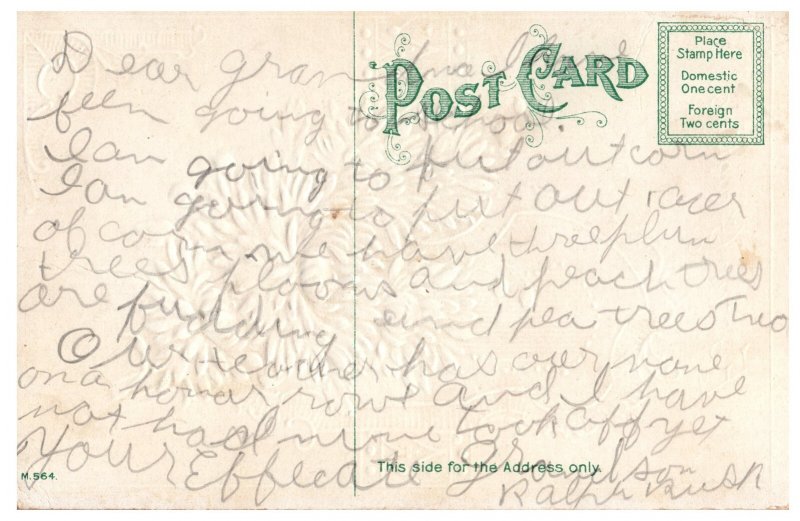 Dear grandma I have
POST CARD
Place
Stamp Here
Domestic
One cent
Foreign
Two cents
been going to school.
I an going to put out corn
I an going to put out 1 acer
of corn we have three plum
trees blooms and peach trees
are budding and pea trees two
Our teacher has our name
on a honor rowe and I have
not had mine took off yet
Your Effecate grandson
Ralph Rusk
This side for the Address only.
M. 564.